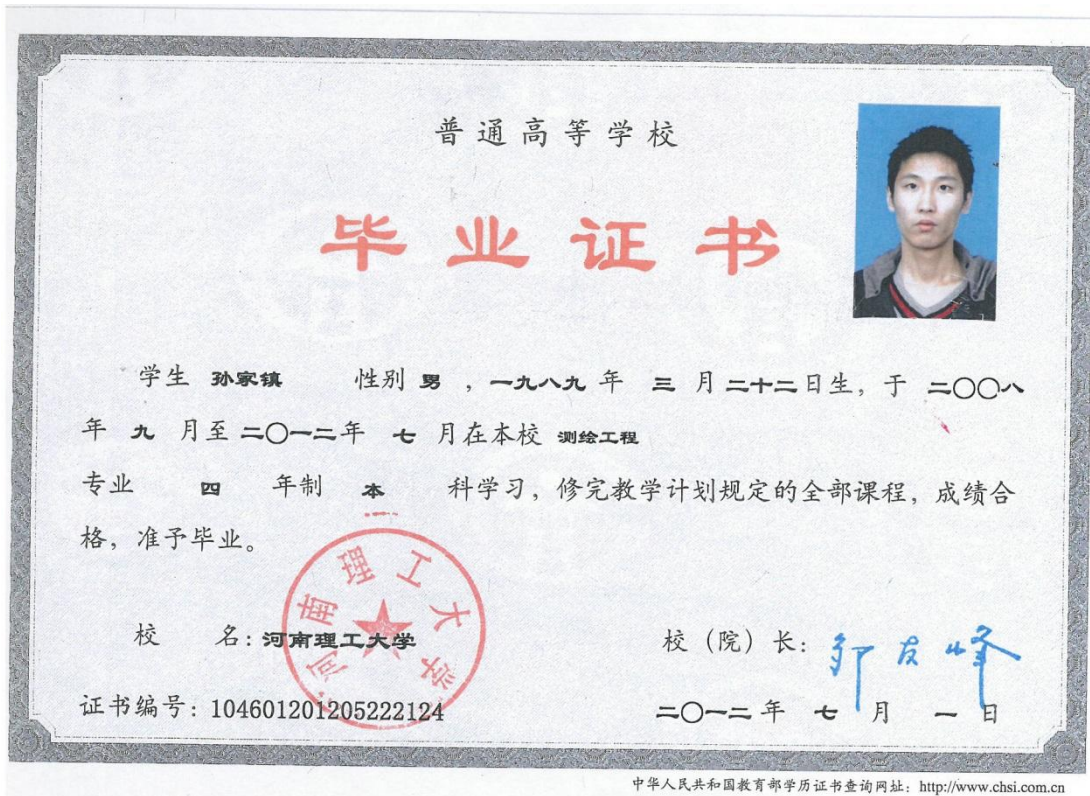 普通高等学校
毕业证书
学生 孙家镇 性别 男 ，一九八九 年 三 月 二十二日生，于 二〇〇八
年 九 月至 二〇一二年 七 月在本校 测绘工程
专业 四 年制 本 科学习，修完教学计划规定的全部课程，成绩合
格，准予毕业。
河南理工大学
校 名：河南理工大学
校（院）长：邹友峰
证书编号：104601201205222124
二〇一二年 七 月 一 日
中华人民共和国教育部学历证书查询网址：http://www.chsi.com.cn